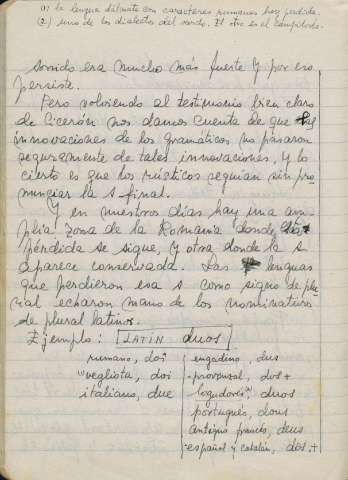 (1) la lengua dálmata con caracteres rumanos hoy perdida.
(2) uno de los dialectos del sardo. El otro es el campidads.
sonido era mucho más fuerte y por eso
persiste.
Pero volviendo al testimonio bien claro
de Cicerón nos damos cuenta de que las
innovaciones de los gramáticos no pasaron
seguramente de tales innovaciones, y lo
cierto es que los rústicos seguían sin pro
nunciar la s final.
Y en nuestros días hay una am
plia zona de la Romania donde
pérdida se sigue, y otra donde la s
aparece conservada. Las lenguas
que perdieron esa s como signo de plu
ral echaron mano de los nominativos
de plural latinos.
Ejemplo: [LATIN duos]
rumano, doi
(1) vegliota, doi
italiano, due
engadino, dus
provenzal, dos +
logudorés, duos
portugués, dous
antiguo francés, deus
español y catalán, dos +